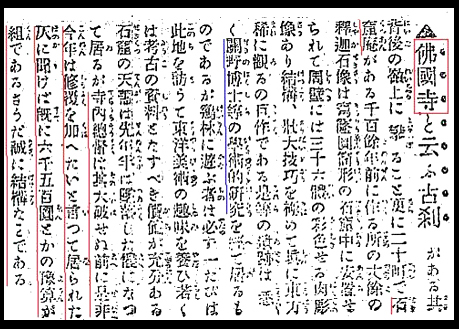 佛國寺と云ふ古刹がある其
背後の嶺上に攀ること更に二十町で石
窟庵がある千百餘年前に作る所の丈餘の
釋迦石像は窮隆圓形の石龕中に安置せ
られて周壁には三十六體の彩色せる肉彫
像あり結構壯大技巧を極めて眞に東方
稀に觀るの巨作である是等の遺跡は悉
く關野博士等の學術的研究を經て居るも
のであるが鷄林に遊ぶ者は必ず一たびは
此地を訪うて東洋美術の趣味を養ひ若く
は考古の資料となすべき價値が充分ある
石窟の天蓋は先年半ば墜落した儘になつ
て居るが寺內總督は其大破せぬ前に是非
今年は修繕を加へたいと言つて居られた
仄に聞けば旣に六千五百圓とかの豫算が
組であるさうだ誠に結構なことである